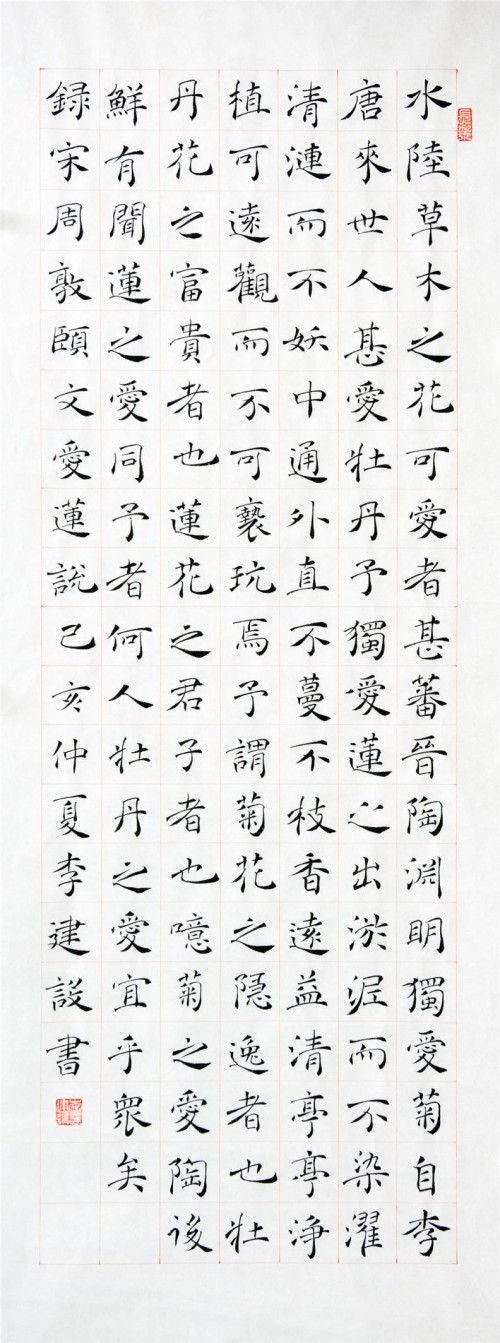 水陸草木之花可愛者甚蕃晉陶淵明獨愛菊自李
唐來世人甚愛牡丹予獨愛蓮之出淤泥而不染濯
清漣而不妖中通外直不蔓不枝香遠益清亭亭淨
植可遠觀而不可褻玩焉予謂菊花之隱逸者也牡
丹花之富貴者也蓮花之君子者也噫菊之愛陶後
鮮有聞蓮之愛同予者何人牡丹之愛宜乎眾矣
録宋周敦頤文愛蓮說己亥仲夏李建設書